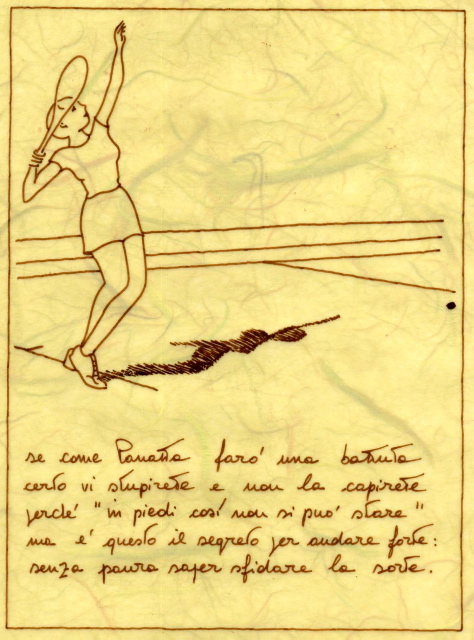 se come Panatta farò una battuta
certo vi stupirete e non la capirete
perché "in piedi così non si può stare"
ma è questo il segreto per andare forte:
senza paura saper sfidare la sorte.